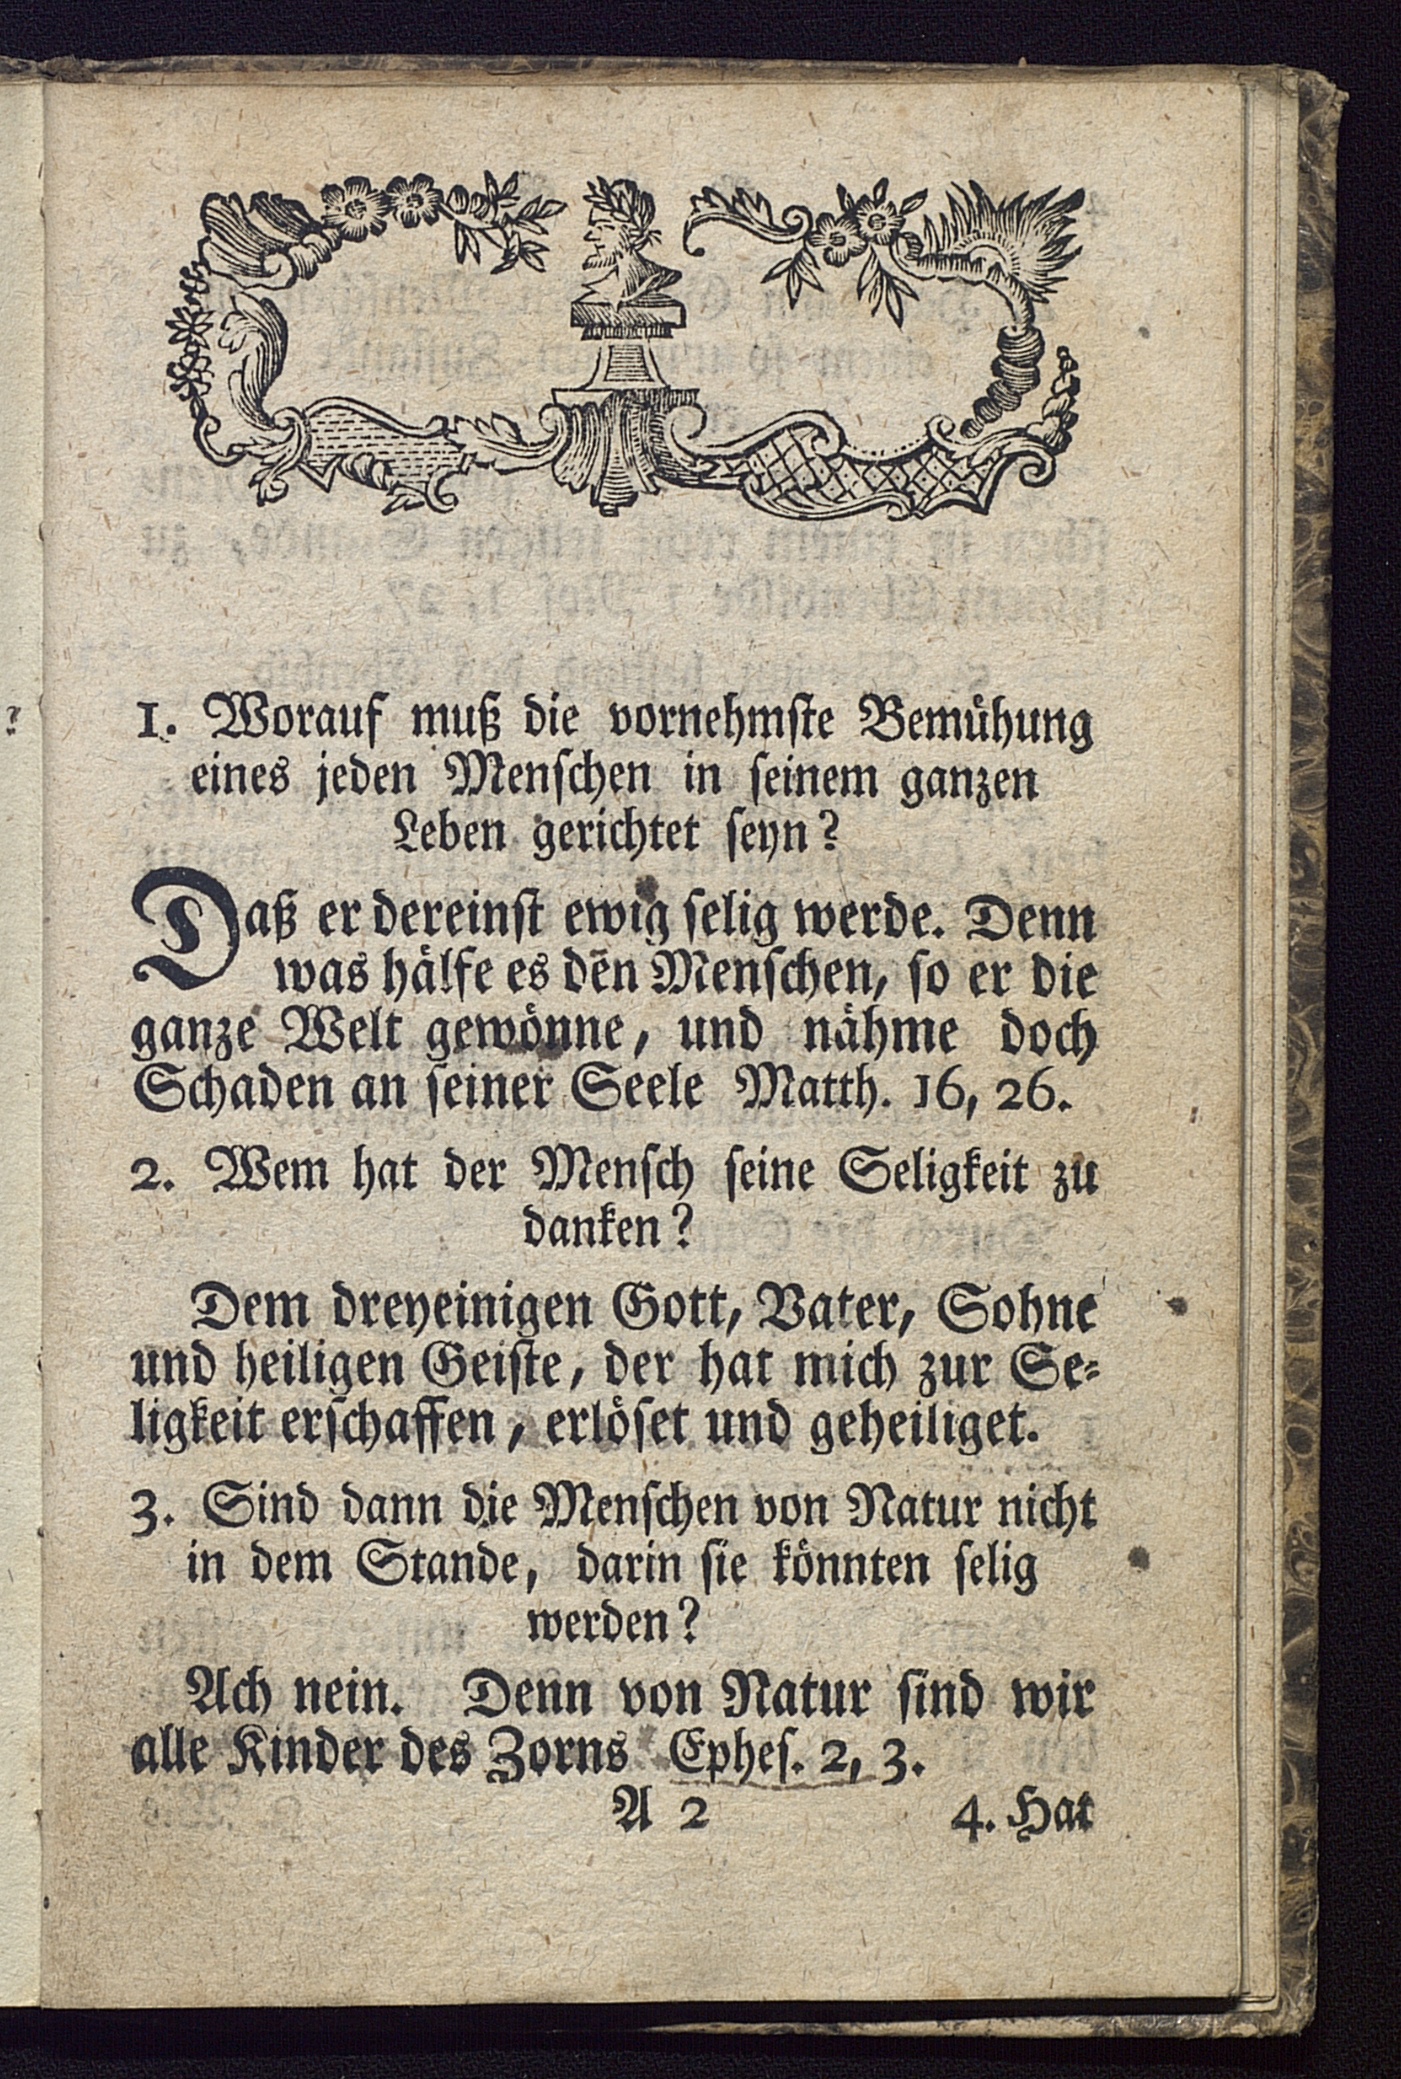 1. Worauf muß die vornehmste Bemühung
eines jeden Menschen in seinem ganzen
Leben gerichtet seyn?
Daß er dereinst ewig selig werde. Denn
was hälfe es den Menschen, so er die
ganze Welt gewönne, und nähme doch
Schaden an seiner Seele Matth. 16, 26.
2. Wem hat der Mensch seine Seligkeit zu
danken?
Dem dreyeinigen Gott, Vater, Sohne
und heiligen Geiste, der hat mich zur Se-
ligkeit erschaffen, erlöset und geheiliget.
3. Sind dann die Menschen von Natur nicht
in dem Stande, darin sie könnten selig
werden?
Ach nein. Denn von Natur sind wir
alle Kinder des Zorns Ephes. 2, 3.
A 2 4. Hat